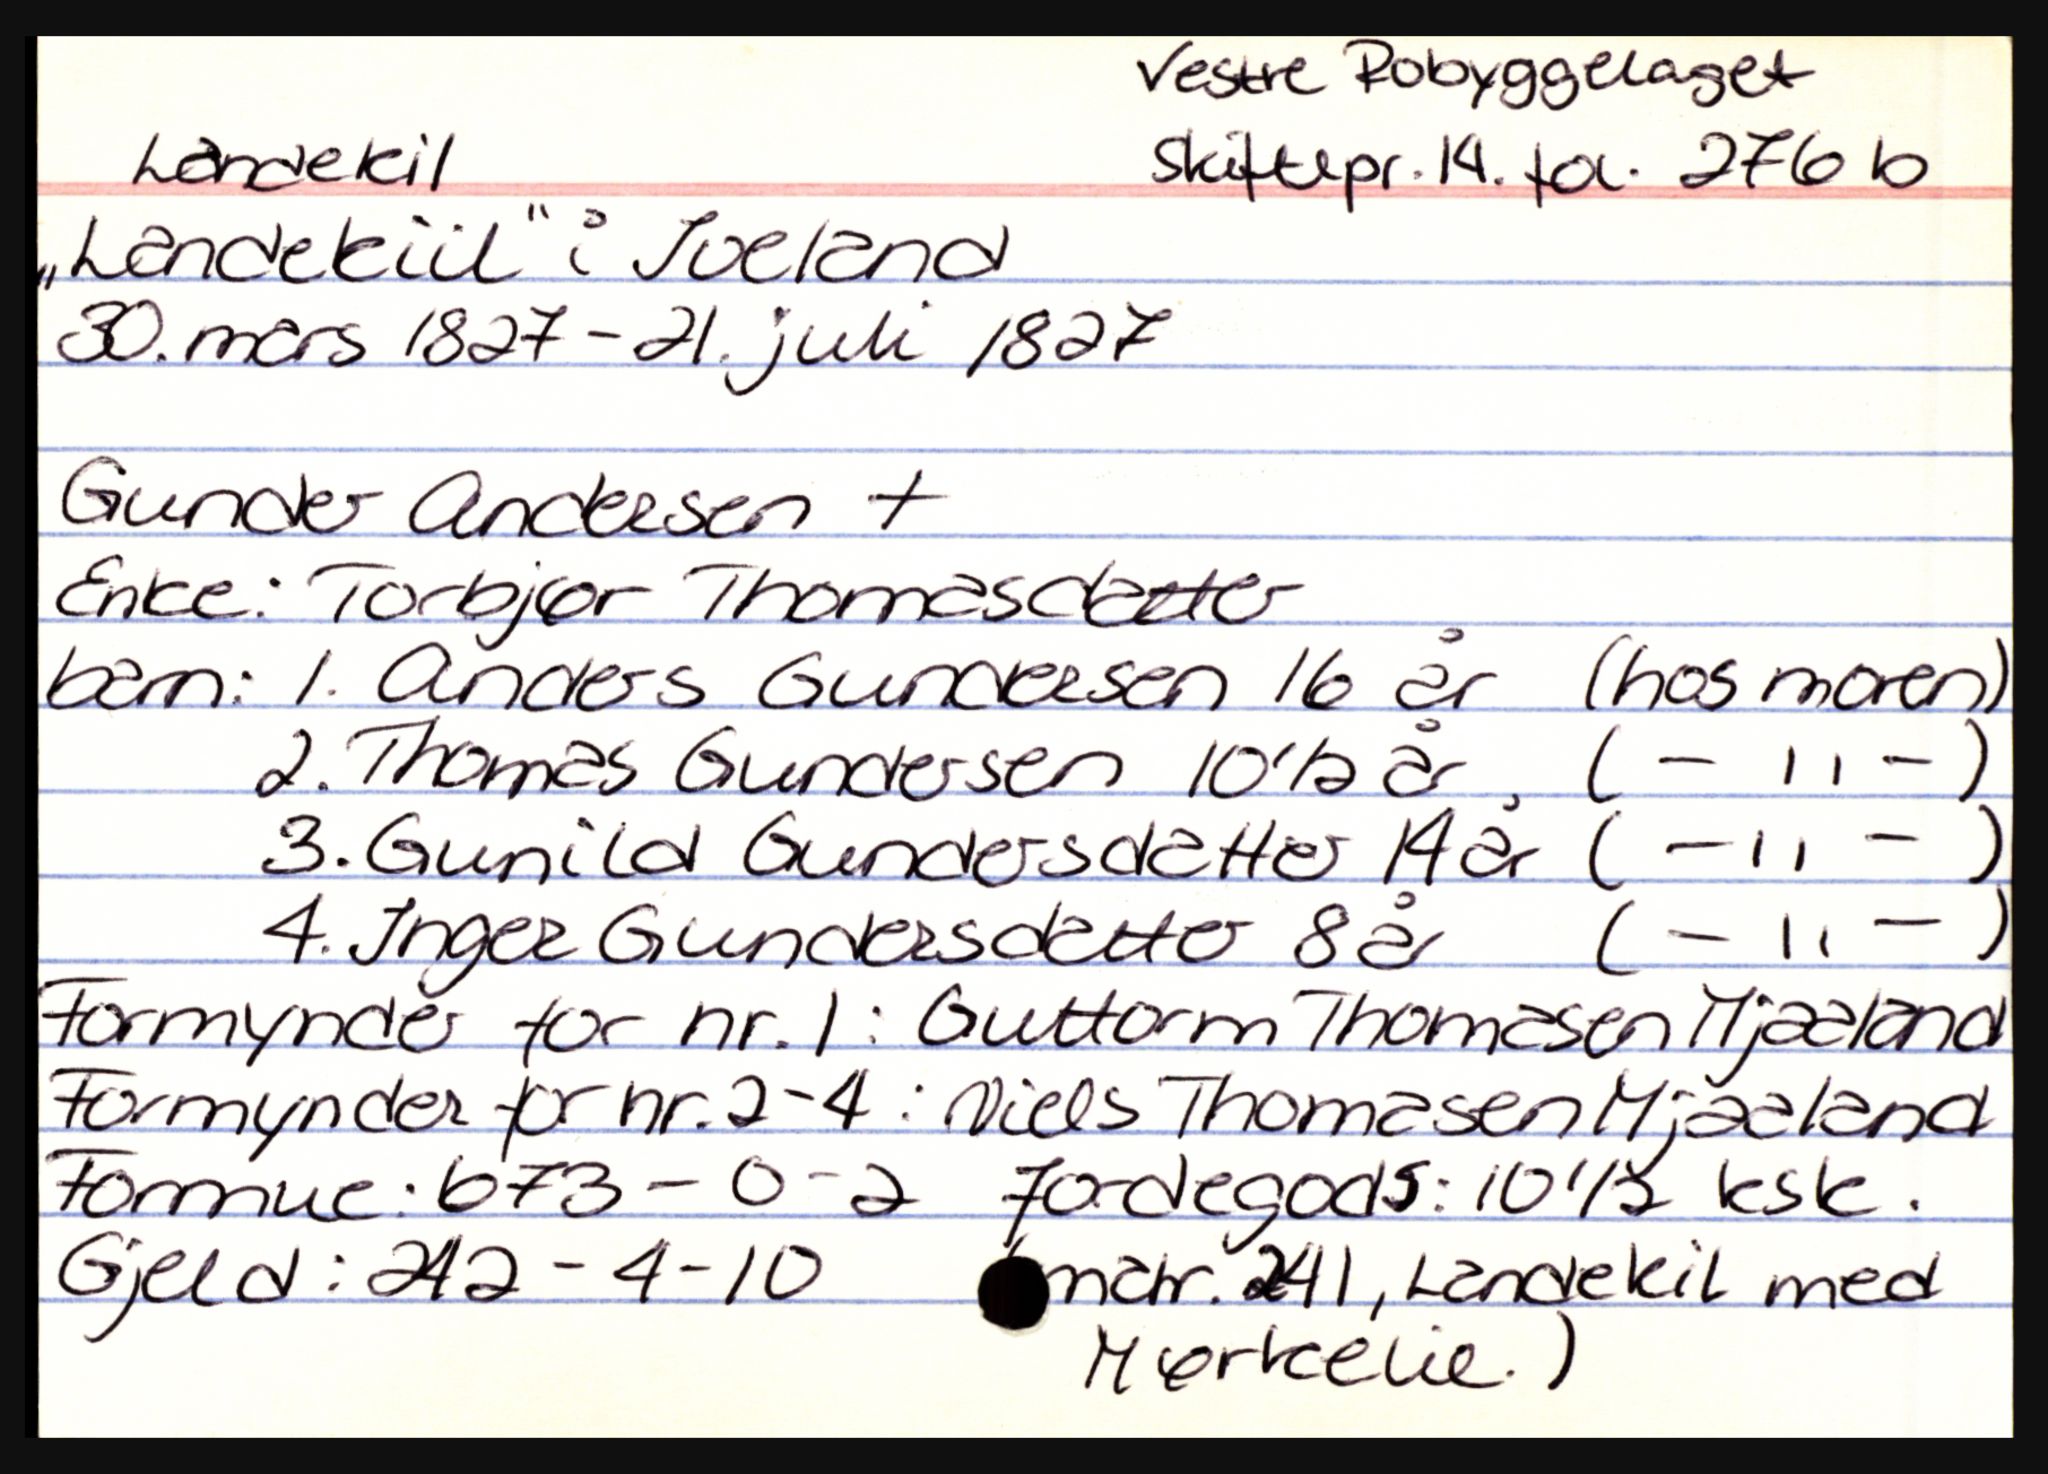 Vestre Robyggelaget
Landekil
Skiftepr. 14. fol. 276 b
„Landekiil“ i Iveland
30. mars 1827 - 21. juli 1827
Gunder Andersen +
Enke: Torbjør Thomasdatter
barn: 1. Anders Gundersen 16 år (hos moren)
2. Thomas Gundersen 10 1/2 år, ( - 11 - )
3. Gunild Gundersdatter 14 år ( - 11 - )
4. Inger Gundersdatter 8 år ( - 11 - )
Formynder for nr. 1: Guttorm Thomasen Mjaaland
Formynder for nr. 2-4: Niels Thomasen Mjaaland
Formue: 673 - 0 - 2 Jordegods: 10 1/2 ksk.
Gjeld: 242 - 4 - 10 (matr. 241, Landekil med
Mørkelie.)